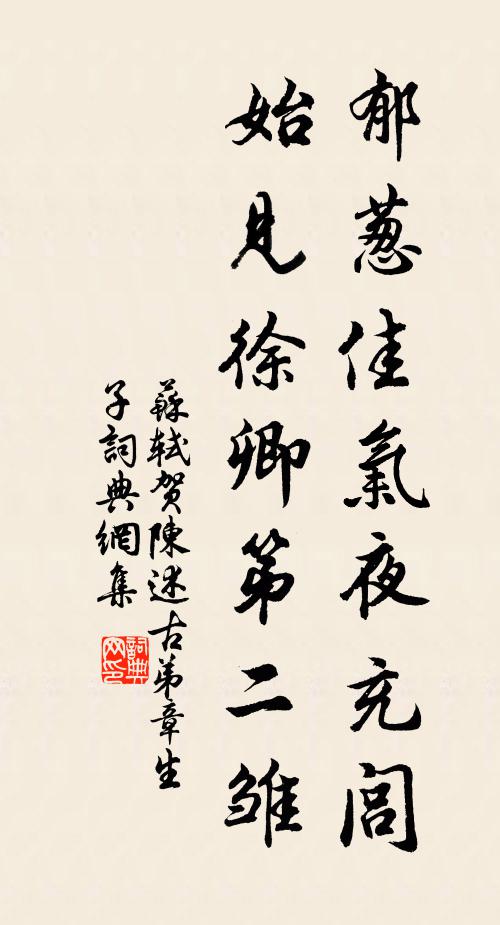 郁葱佳氣夜充閭
始見徐卿第二雛
蘇軾賀陳述古弟章生
子詞典網集
詞典网印